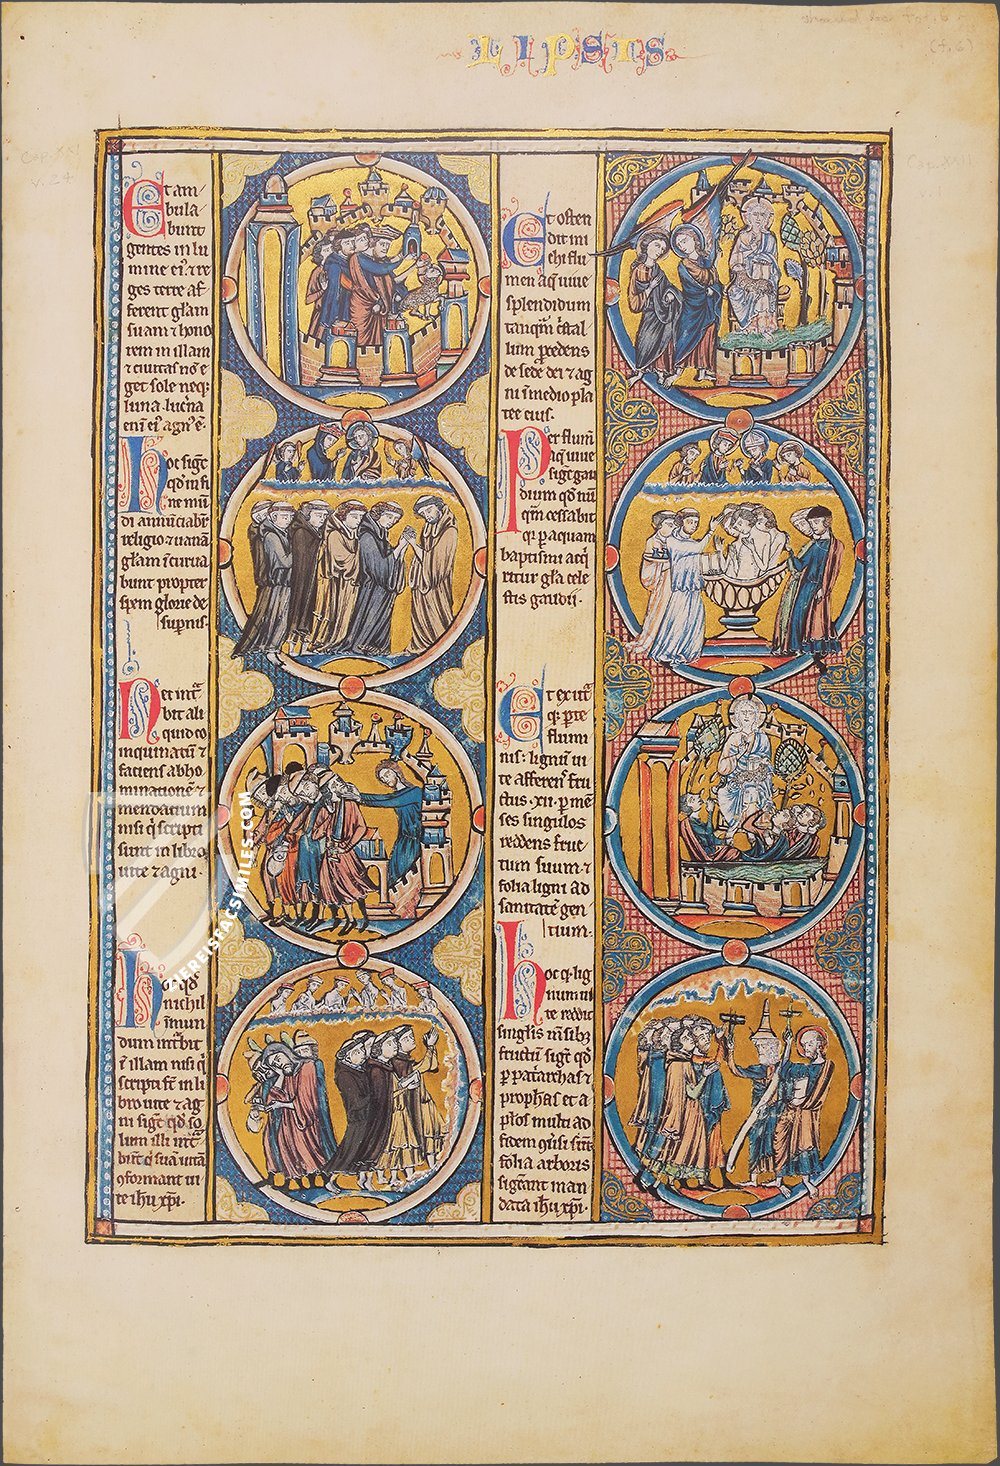 LIPSIS
(f. 6)
Et am/
bula/
bunt
gentes in lu
mine ei⁹ ⁊ re
ges terre af/
ferent gl̃am
suam ⁊ hono
rem in illam
⁊ ciuitas nõ e
get sole neq;
luna · luc̃na
eni ei⁹ agn⁹ ẽ ·
hoc sig̃t
qd̃ in fi
ne mũ
di annũciabr̃
religio ⁊ uanã
gl̃am ĩcurua
bunt propter
spem glorie de
sup̃nis ·
Nec int̃a
bit ali
quid co
inquinatũ ⁊
faciens abho
minationẽ ⁊
mendatium
nisi q̃ scripti
sunt in libro
uite ⁊ agni ·
hoc qd̃
nichil
ĩmun
dum int̃bit
ĩ illam nisi q̃
scripti st̃ in li
bro uite ⁊ ag
ni sig̃t qd̃ so
lum illi int̃
bũt q̃ suã uitã
ꝯformant ui
te ih̃u xp̃i ·
Et osten
dit mi
chi flu
men aq̃ uiue
splendidum
tanq̃m c̃stal
lum ꝓcedens
de sede dei ⁊ ag
ni ĩ medio pla
tee eius ·
Per flum̃
aq̃ uiue
sig̃t gau
dium qd̃ nũ
q̃m cessabit
q̃ ꝑ aquam
baptismi acq̃
ritur gl̃a cele
stis gaudii ·
Et ex ut̃a
q; ꝑte
flumi
nis · lignũ ui
te afferens̃ fru
ctus · xii · ꝑ mẽ
ses singulos
reddens fruc
tum suum ⁊
folia ligni ad
sanitatẽ gen
tium ·
hoc q̃ lig
num ui
te reddit
singlis m̃sib;
fructũ sig̃t qd̃
ꝑ pat̃archas ⁊
proph̃as et a
pl̃os multi ad
fidem ꝯũsi sũt
folia arboris
sig̃cant man
data ih̃u xp̃i ·
ZIEREISFACSIMILES.COM